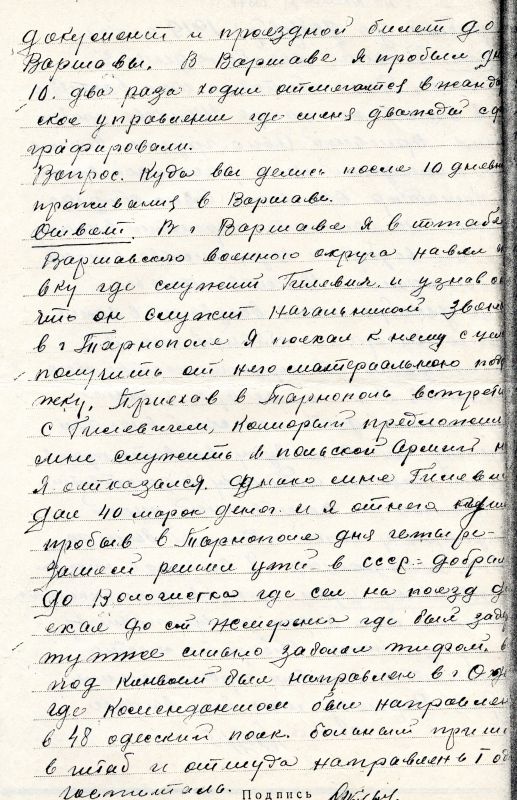 документ и проездной билет до
Варшавы. В Варшаве я пробыл дн
10. два раза ходил отмегатся в жанда
ское управление где меня дважды сфо
графировали.
Вопрос. Куда вы делись после 10 дневн
проживания в Варшаве.
Ответ. В г Варшаве я в штабе
Варшавского военного округа навел
вку где служит Гилевич, и узнав от
что он служит начальником звен
в г Тарнополе я поехал к нему с цел
получить от него материальною под
жку, Приехав в Тарнополь встрети
с Гилевичем, который предложил
мне служить в польской Армии н
Я отказался. Однако мне Гилевич
дал 40 марок денег и я от него
пробыв в Тарнополе дня четыре-
затем решил уйти в СССР. добрал
до Волочистка где сел на поезд д
ехал до ст Жмеренка где был заде
ту тже сильно заболел тифом, в
под канвоем был направлен в г Оде
где комендантом был направлен
в 48 одесский полк. больным приш
в штаб и оттуда направлен в 1 од
госпиталь.
Подпись